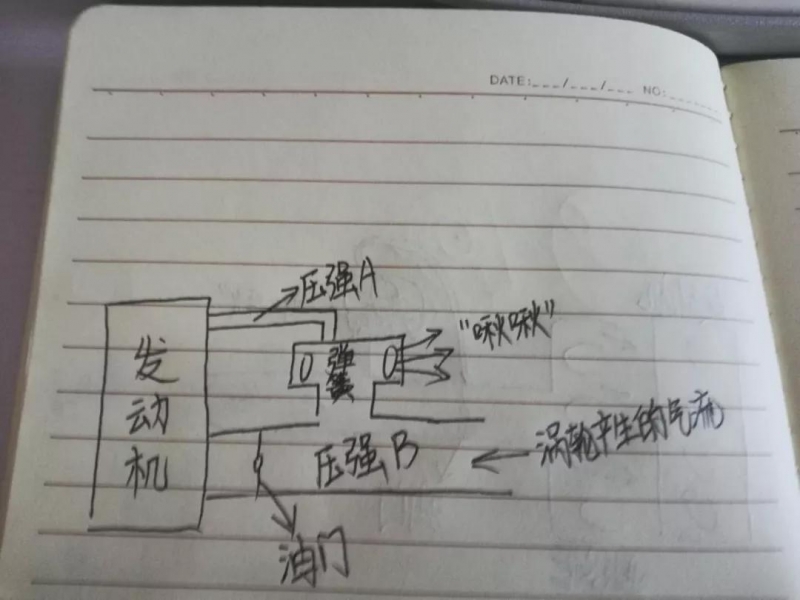 DATE:___/___/___ NO:______
压强A
"啾啾"
弹
簧
发
动
机
压强B
涡轮产生的气流
油门